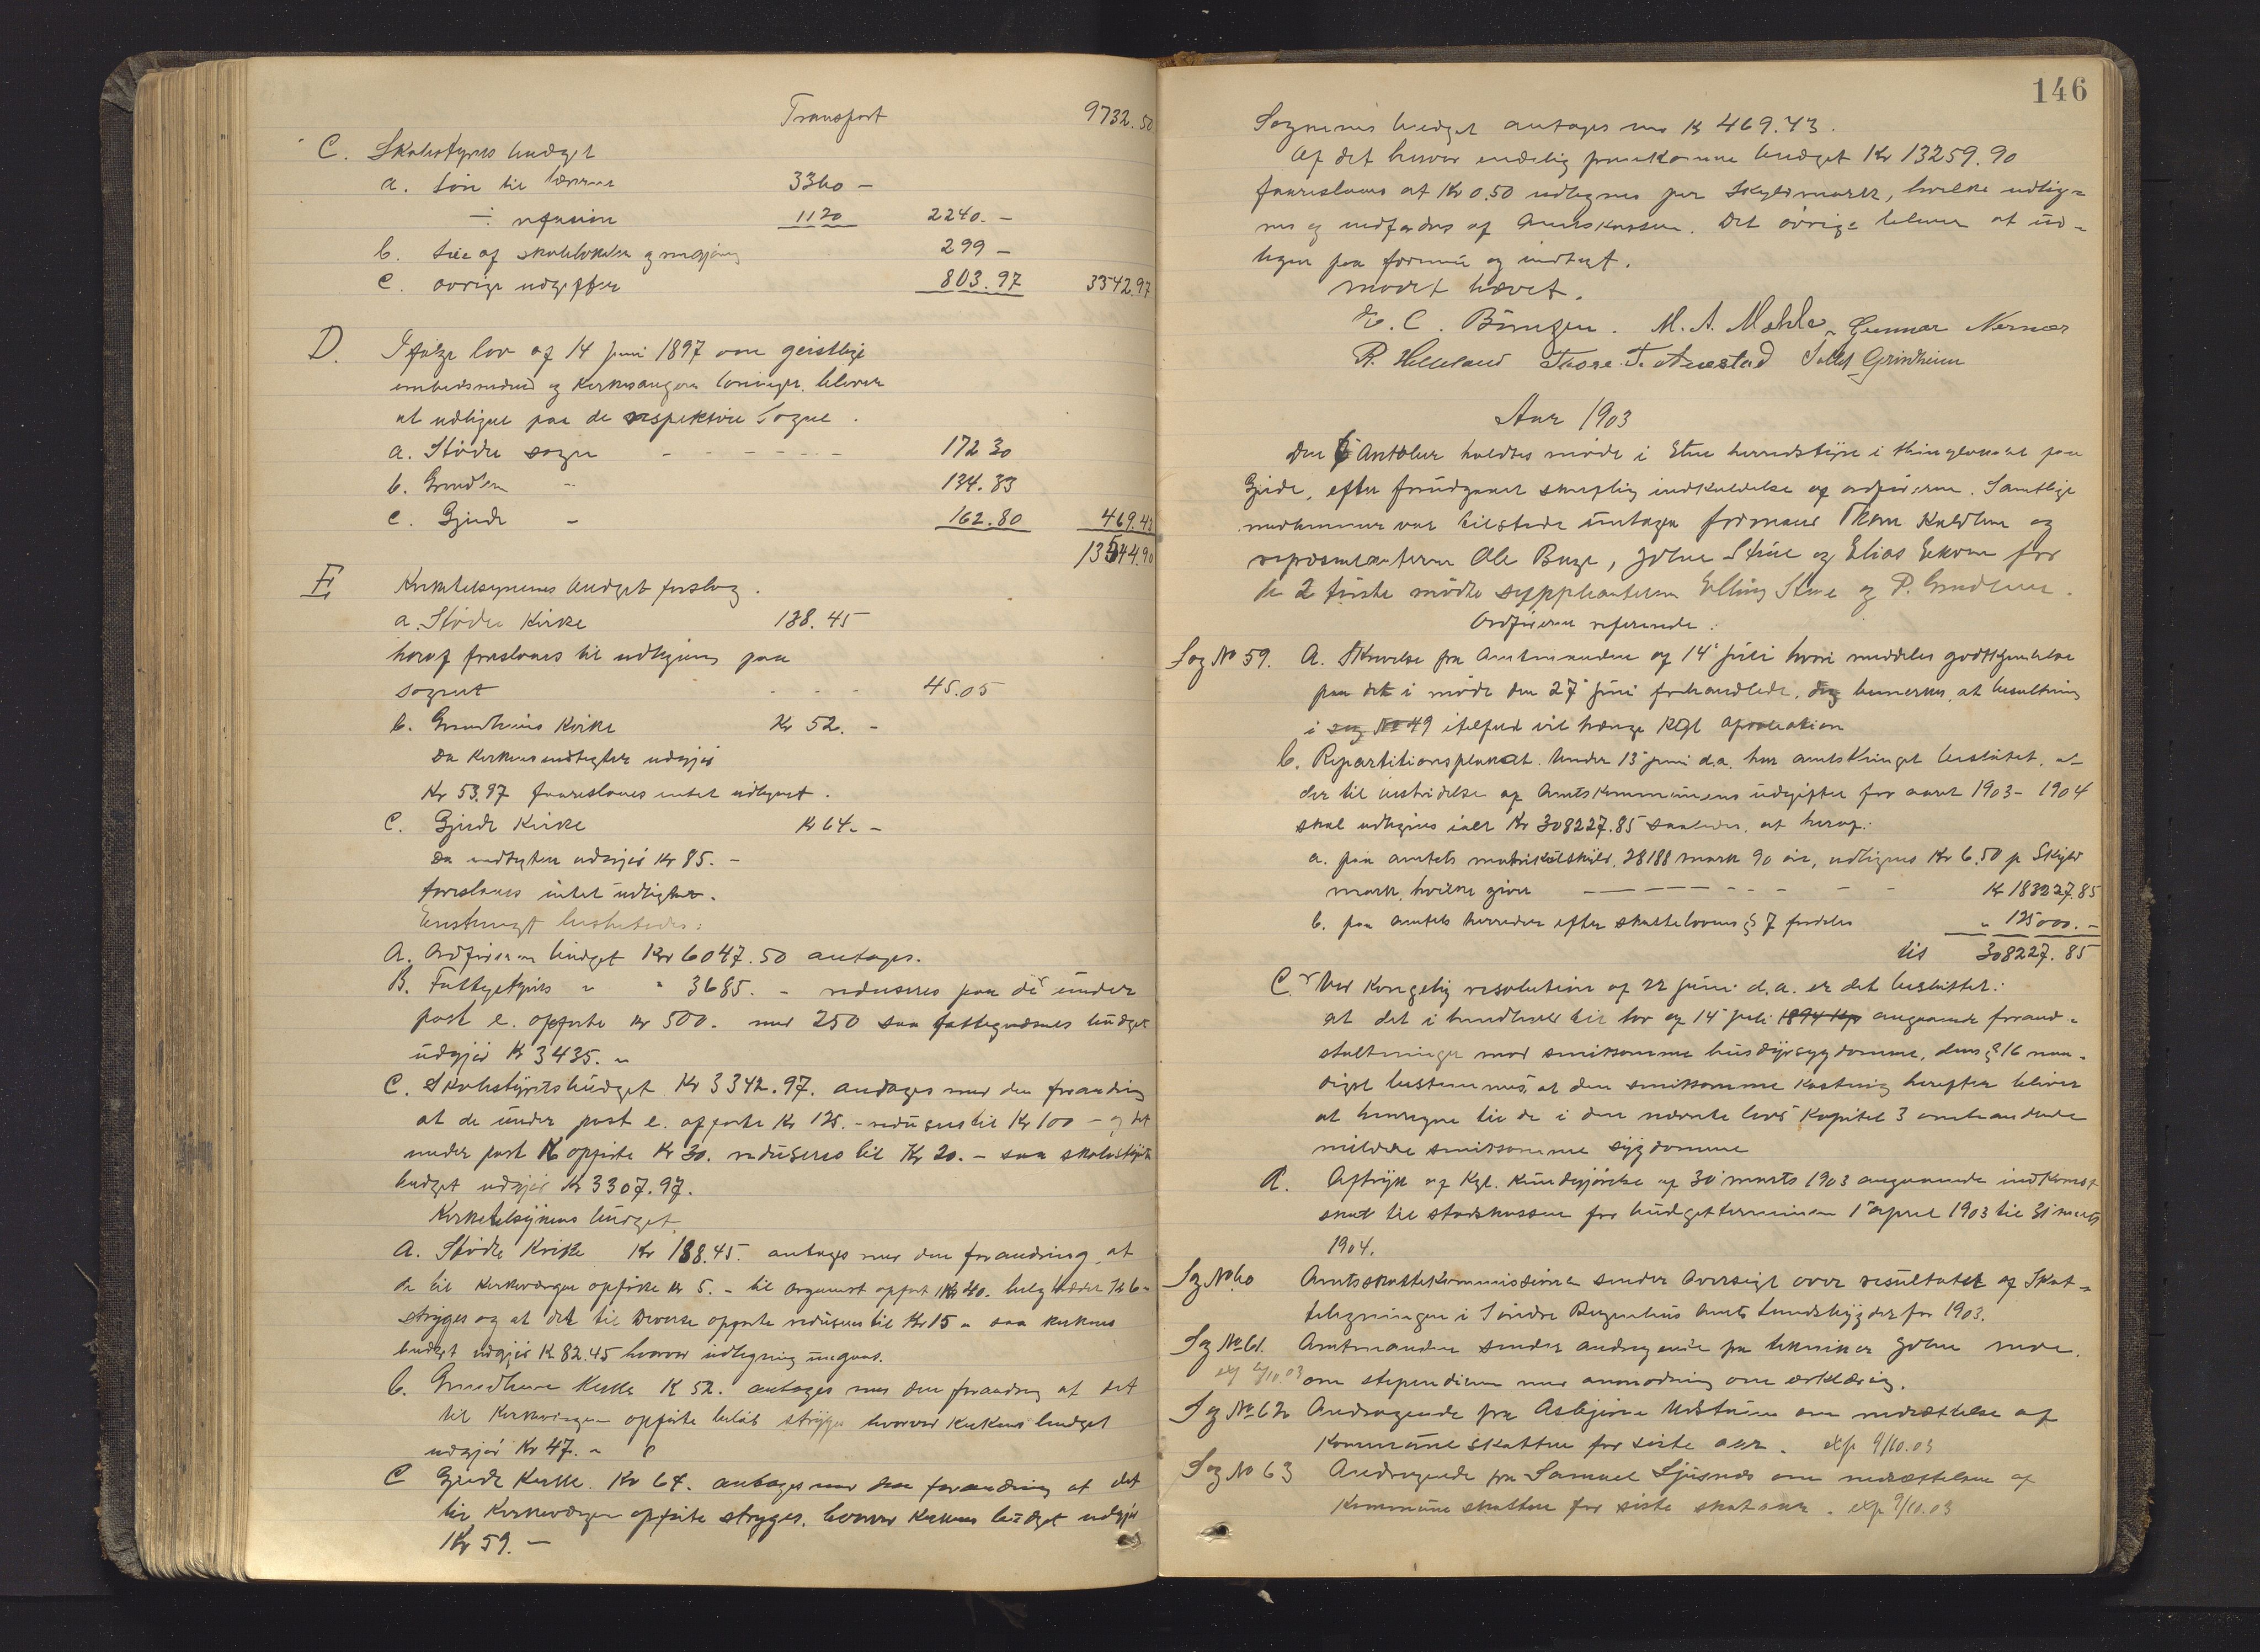 Transport 9732.50
C. Skolestyrets budget
a. Løn til lærerne 3360 –
÷ refusion 1120 2240. –
b. Leie af skolelokaler og rengjøring 299 –
c. øvrige udgifter 803.97 3342.97
D. Ifølge lov af 14 juni 1897 om geistlige
embedsmænd og kirkesangeres lønninger bliver
at udligne paa de respektive sogne.
a. Stødle sogn - - - - - - 172 30
b. Grindh. - 134.33
c. Gjerde - 162.80 469.43
13544.90
E Kirketilsynenes budget forslag.
a. Stødle Kirke 188.45
herof foreslaaes til udligning paa
sognet - - - 45.05
b. Grindheims Kirke Kr 52. –
Da kirkens indtægter udgjør
Kr 53.97 foareslaaes intet udlignet.
C. Gjerde Kirke Kr 64. –
Da indtægten udgjør Kr 85. –
foreslaaes intet udlignet.
Enstemmigt besluttedes:
A. Ordførerens budget Kr 6047.50 antages.
B. Fattigstyrets " " 3685. – reduseres paa de under
post e. opførte Kr 500. med 250 saa fattigvæsnets budget
udgjør Kr 3435. "
C. Skolestyrets budget Kr 3342.97. andages med den forandring
at de under post e. opførte Kr 125. – reduseres til Kr 100 – og det
under post K opførte Kr 30. reduseres til Kr 20. – saa skolestyrets
budget udgjør Kr 3307.97.
Kirketilsynenes budget.
A. Stødle Kirke Kr 188.45. antages med den forandring, at
de til kirkeværgen opførte Kr 5. – til organist opført Kr 40. Kr 6 –
stryges og at det til Diverse opførte reduseres til Kr 15 " saa kirkens
budget udgjør Kr 82.45 hvorav udlegning undgaaes.
b. Grindheim Kirke Kr 52. antages med den forandring at det
til Kirkeværgen opførte beløb stryges hvorved kirkens budget
udgjør Kr 47. "
C Gjerde Kirke. Kr 64. antages med den forandring at det
til Kirkeværgen opførte stryges, hvorved kirkens budget udgjør
Kr 59. –
146
Sognenes budget antages med Kr 469.43.
Af det hvorav endelig fremkomne budget Kr 13259.90
foareslaaes at Kr 0.50 udlignes per Skyldmark, hvilke udlig-
nes og indfordres af Amtskassen. Det øvrige bliver at ud-
ligne paa formue og indtægt.
Mødet hævet.
E. C. Børretzen. M. A. Mæhle. Gunnar Nernæs
R. Helleland Tore T. Austad Grindheim
Aar 1903
Den 6 Octobur holdtes møde i Etne herredstyre i thinglokalet paa
Gjerde, efter forudgaaet skriftlig indkaldelse af ordføreren. Samtlige
medlemmer var tilstede undtagen formand Kaldheim og
repræsentanterne Ole Bugge, Johne Støle og Elias Ekrene for
de 2 første mødte suppleanterne Elling og P. Grindheim.
Ordføreren refererede:
Sag No 59. A. Skrivelse fra Amtmanden af 14 juli hvori meddeles godkjendelse
paa det i møde den 27 juni forhandlede, dog bemerkes, at beslutning
i sag No 49 itilfelde vil trænge Kgl approbation
b. Repartitionsplakat. Under 13 juni d.a. har amtsthinget besluttet, at
der til bestridelse af Amtskommunens udgifter for aaret 1903 – 1904
skal udlignes ialt Kr 308227.85 saaledes, at herav:
a. paa amtets matrikelskyld, 28188 mark 90 øre, udlignes Kr 6.50 p Skyld
mark, hvilke giver – – – – – – Kr 183227.85
b. paa amtets herreder efter skattelovens § 7 fordeles " 125000. –
tils 308227.85
C. Ved Kongelig resolution af 22 juni d.a. er det besluttet:
at det i henhold til lov af 14 juli 1894 angaaende forand-
staltninger mod smitsomme husdyrsygdomme, dens § 16
bestemmes, at den smitsomme Kastning herefter bliver
at henregne til de i den nævnte lovs Kapitel 3 omhandlede
mildere smitsomme sygdomme
d. Aftryk af Kgl. Kundgjørelse af 30 marts 1903 angaaende indkomst
skat til statskassen for budgetterminen 1 april 1903 til 31 marts
1904.
Sag No 60 Amtsskattekommissionen sender Oversigt over resultatet af Skat-
teligningen i Søndre Bergenhus Amts Landsbygder for 1903.
Sag No 61. Amtmanden sender andragende fra tekniker Johne Moe.
exp 9/10.03 om stipendium med anmodning om erklæring.
Sag No 62 Andragende fra Asbjørn om nedsættelse af
Kommuneskatten for siste aar. exp 9/10.03
Sag No 63 Andragende fra Samuel Ljusnæs om nedsættelsen af
Kommuneskatten for siste skataar. exp 9/10.03